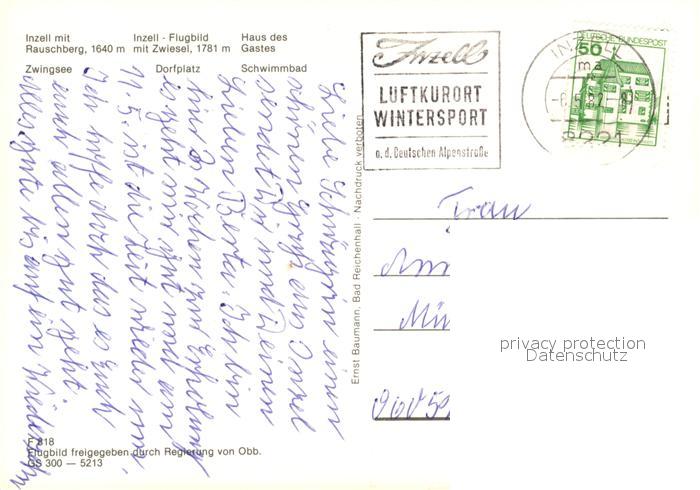 Inzell mit
Rauschberg, 1640 m
Inzell - Flugbild
mit Zwiesel, 1781 m
Haus des
Gastes
Zwingsee
Dorfplatz
Schwimmbad
Liebe Schwägerin einen
schönen Gruß aus Inzell
sendet Dir und Deinen
Lieben Berta. Ich bin
hier 3 Wochen zur Erholung
es geht mir gut und am
11.5. ist die Zeit wieder um.
Ich hoffe doch das es Euch
auch allen gut geht.
Alles gute bis auf ein Wiedersehn
F 818
Flugbild freigegeben durch Regierung von Obb.
GS 300 — 5213
Ernst Baumann, Bad Reichenhall · Nachdruck verboten
Inzell
LUFTKURORT
WINTERSPORT
a. d. Deutschen Alpenstraße
DEUTSCHE BUNDESPOST
50
INZELL
8221
Frau
privacy protection
Datenschutz